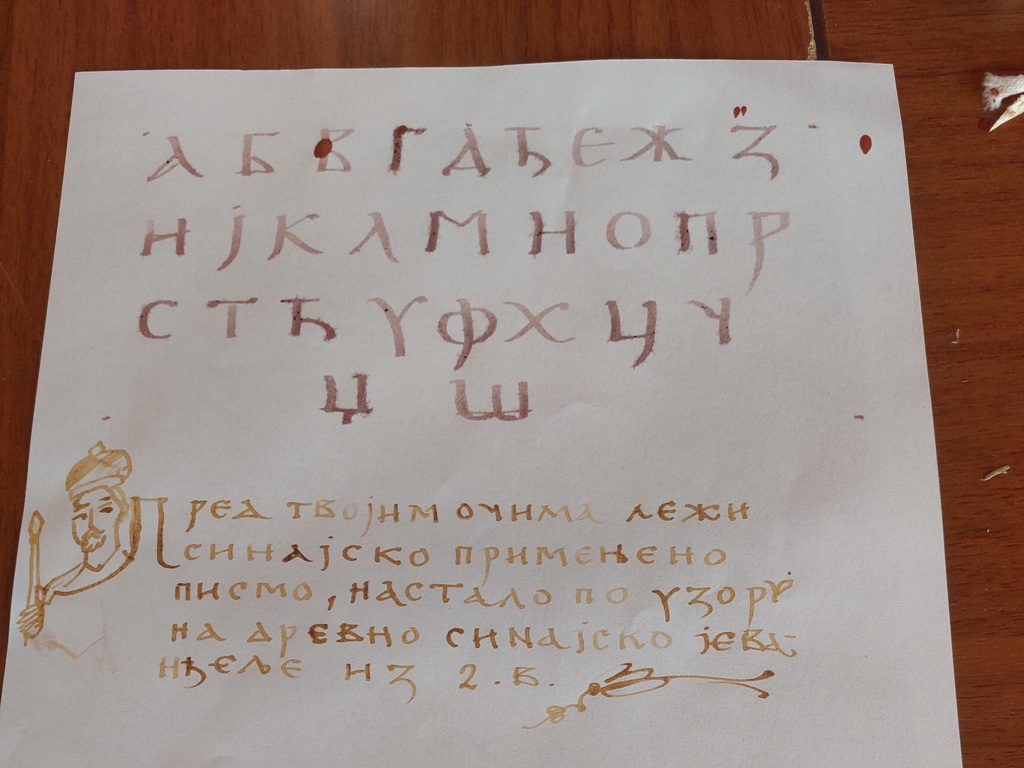 А Б В Г Д Ђ Е Ж З
И Ј К Л М Н О П Р
С Т Ћ У Ф Х Ц Ч
Џ Ш
Пред твојим очима лежи
синајско примењено
писмо, настало по узору
на древно синајско јева-
нђеље из 2. в.